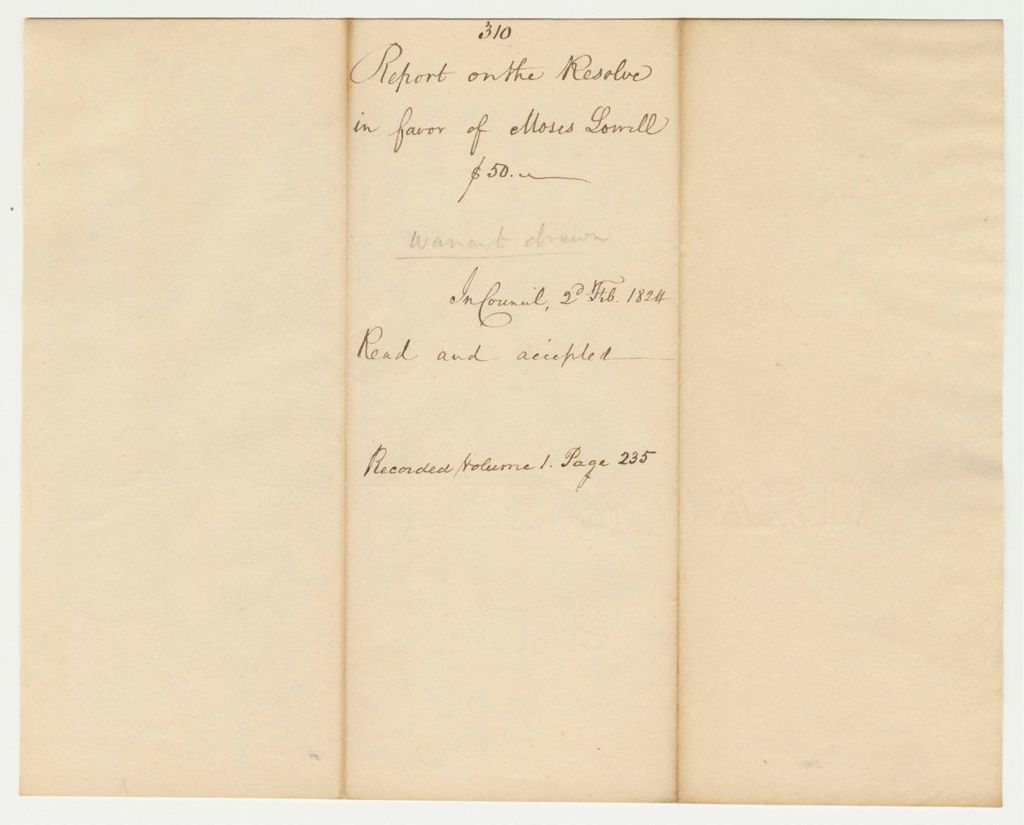 310
Report on the Resolve
in favor of Moses Lowell
$50.
warrant drawn
In Council, 2d Feb. 1824
Read and accepted
Recorded Volume 1. Page 235